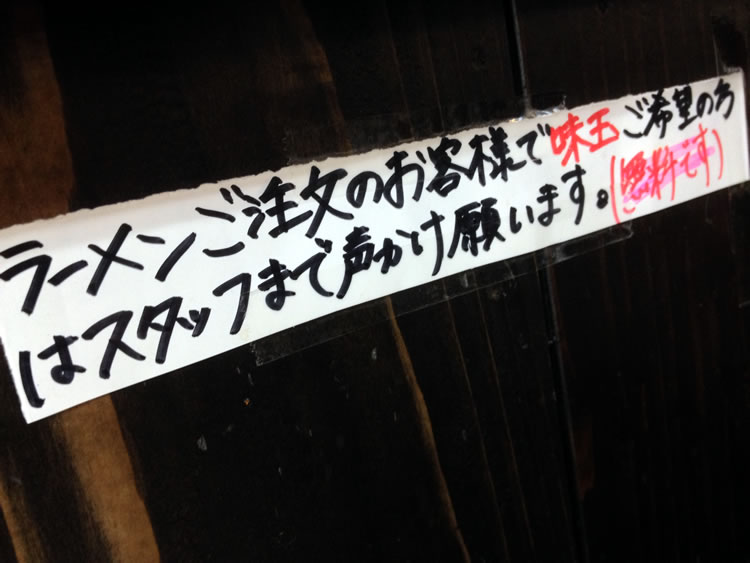 ラーメンご注文のお客様で味玉ご希望の方
はスタッフまで声かけ願います。(無料です)